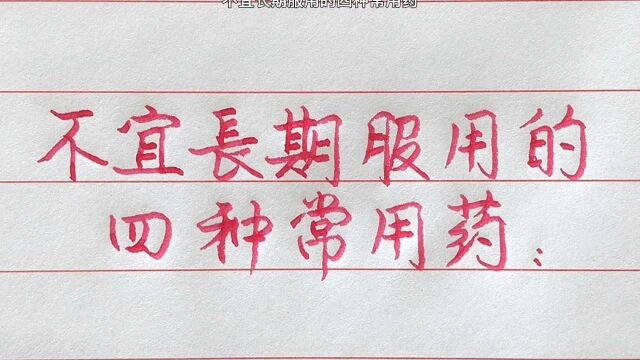 不宜长期服用的四种常用药
不宜長期服用的
四种常用药：